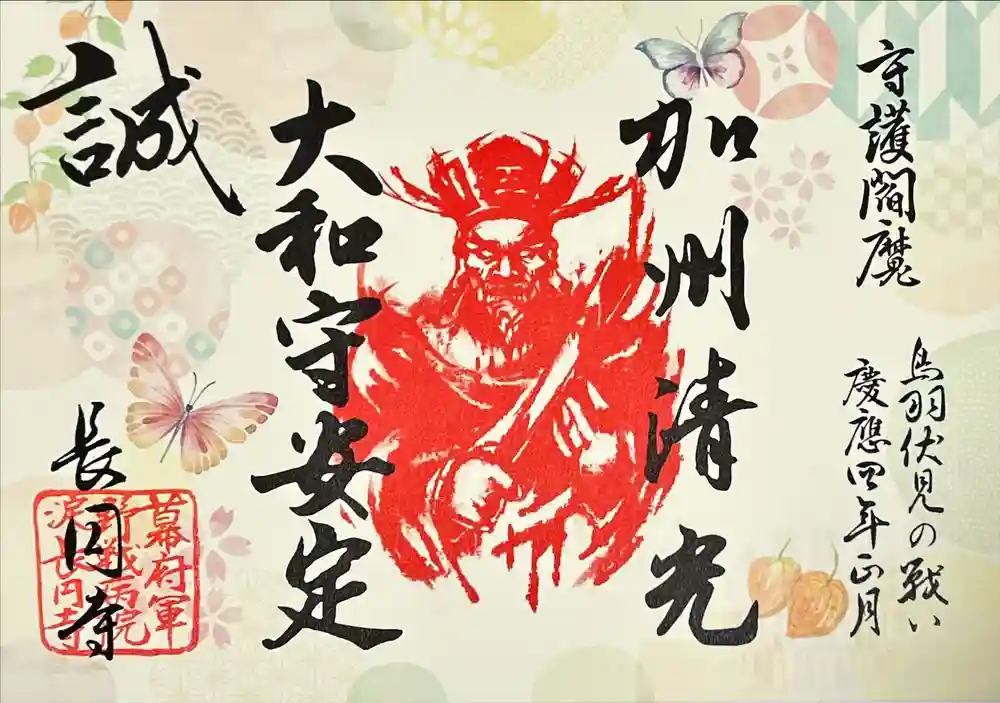 守護閻魔
鳥羽伏見の戦い
慶應四年正月
加州清光
大和守安定
誠
長円寺
幕府軍
野戦病院
淀長円寺